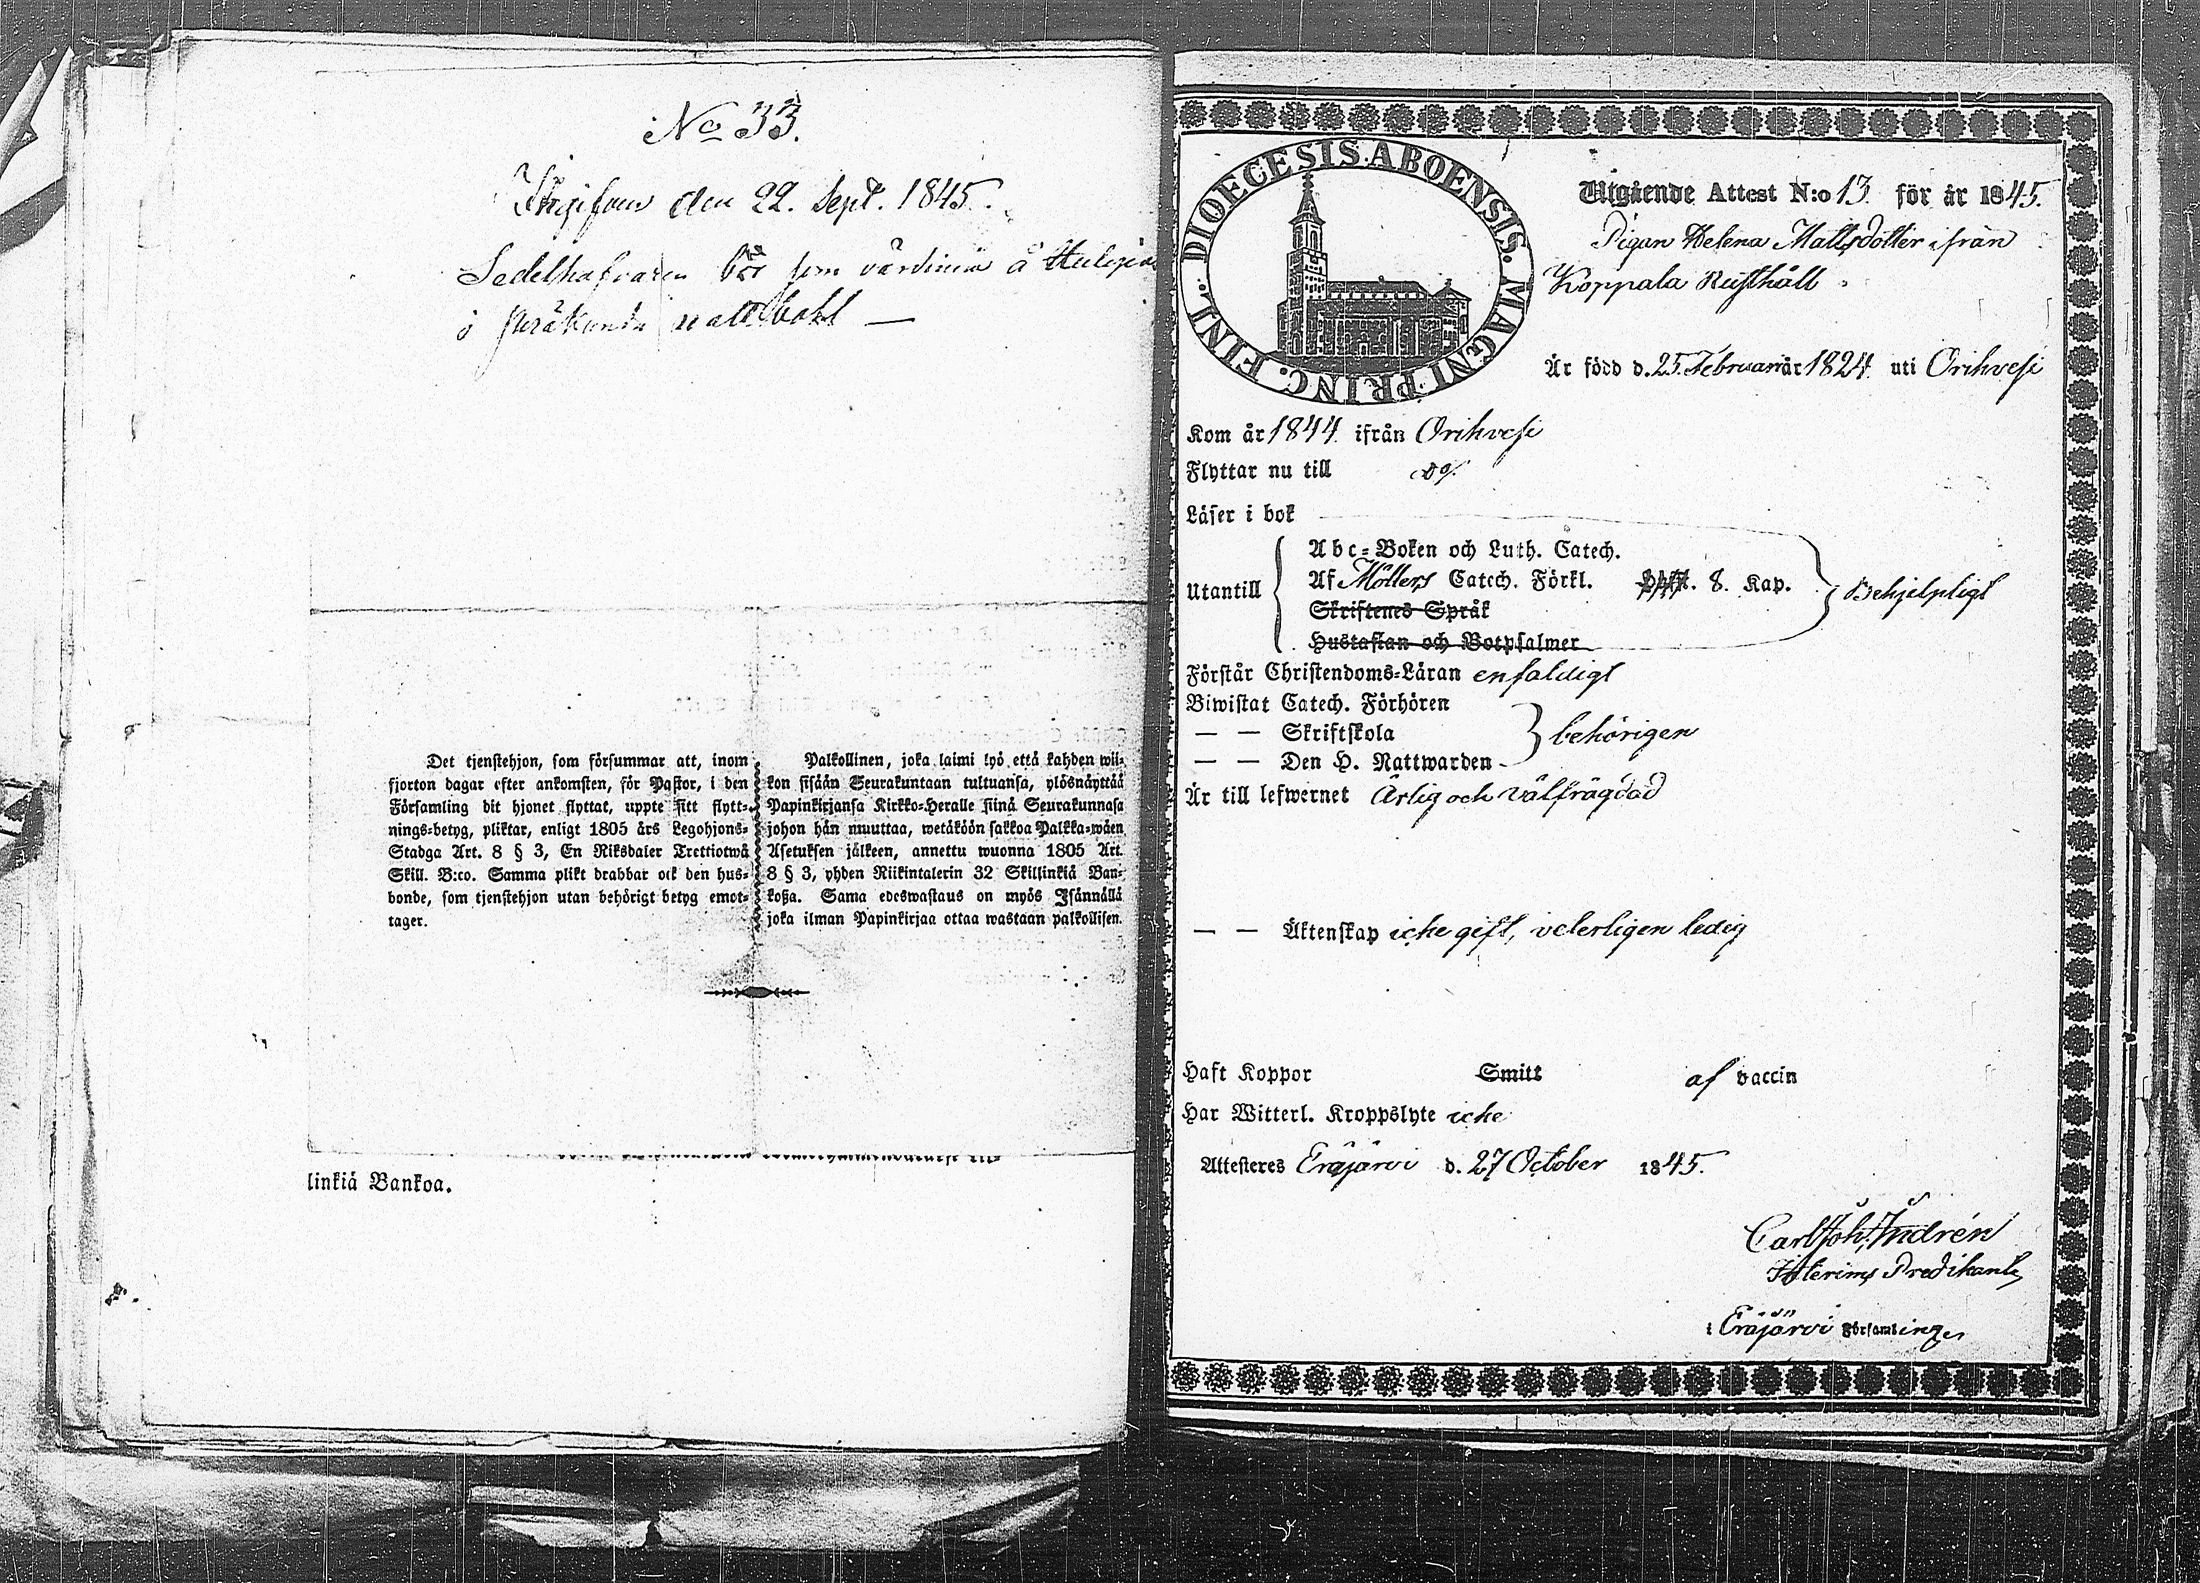 No 33.
den 22. Sept. 1845.
Sedelhafvaren bor som värdinna å
i
Det tjenstehjon, som försummar att, inom
fjorton dagar efter ankomsten, för Pastor, i den
Församling dit hjonet flyttat, uppte sitt flytt-
nings-betyg, pliktar, enligt 1805 års Legohjons-
Stadga Art. 8 § 3, En Riksdaler Trettiotwå
Skill. B:co. Samma plikt drabbar ock den hus-
bonde, som tjenstehjon utan behörigt betyg emot-
tager.
Palkollinen, joka laimi lyö että kahden wii-
kon sisään Seurakuntaan tultuansa, ylösnäyttää
Papinkirjansa Kirkko-Heralle siinä Seurakunnasa
johon hän muuttaa, wetäköön sakkoa Palkka-wäen
Asetuksen jälkeen, annettu wuonna 1805 Art.
8 § 3, yhden Riikintalerin 32 Skillinkiä Ban-
koßa. Sama edeswastaus on myös Isännällä
joka ilman Papinkirjaa ottaa wastaan palkollisen.
linkiä Bankoa.
DIOECESIS ABOENSIS. MAGNI PRINC. FINL.
Utgående Attest N:o 13 för år 1845.
Pigan Helena Mattsdotter ifrån
Koppala Rusthåll
Är född d. 25 Februari år 1824 uti Orihvesi
Kom år 1844 ifrån Orihvesi
Flyttar nu till do/.
Läser i bok
Utantill
Abc-Boken och Luth. Catech.
Af Möllers Catech. Förkl. 8. Kap.
Skriftenes Språk
Hustaflan och Botpsalmer
Behjelpligt
Förstår Christendoms-Läran enfaldigt
Biwistat Catech. Förhören
— — Skriftskola
— — Den H. Nattwarden
behörigen
Är till lefwernet Ärlig och välfrägdad
— — Äktenskap icke gift, veterligen ledig
Haft Koppor Smitt af vaccin
Har Witterl. Kroppslyte icke
Attesteres Eräjärvi d. 27 October 1845.
Carl Joh. Indrén
Interims Predikant
i Eräjärvi Församlingen